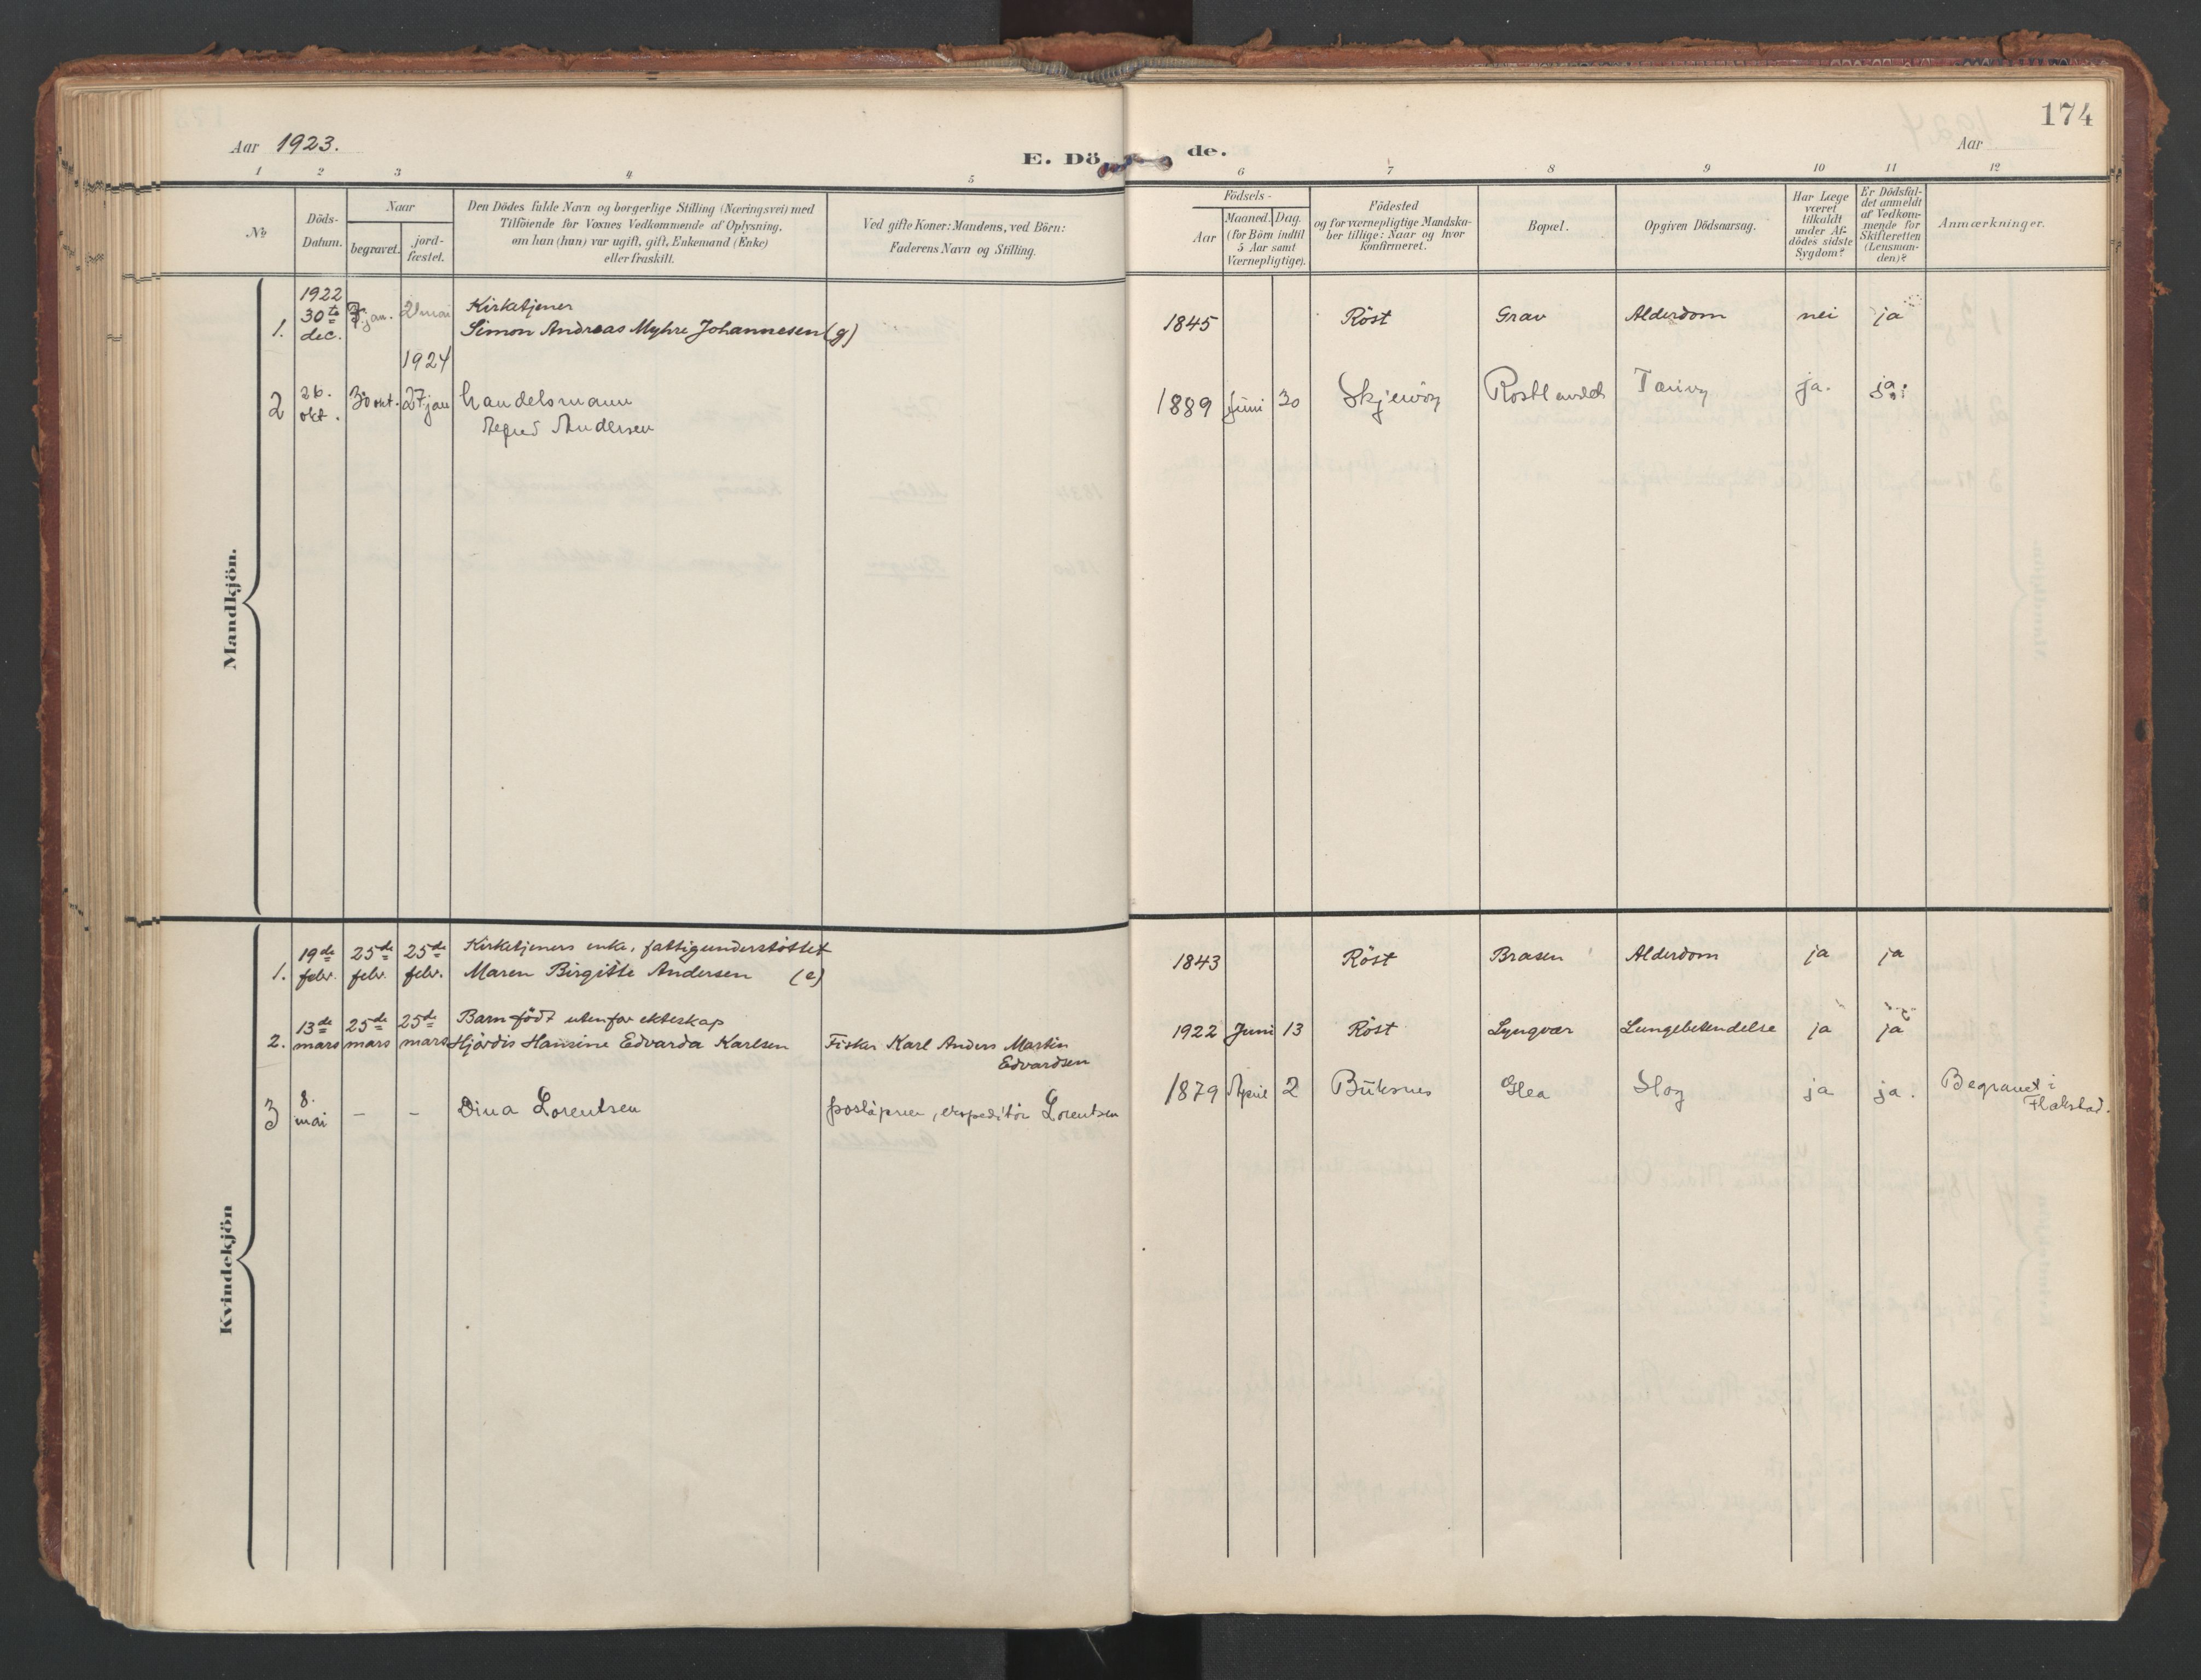 174
Aar 1923.
E. Dö
de.
Aar
1 2 3 4 5 6 7 8 9 10 11 12
No
Döds-
Datum.
Naar
begravet.
jord-
fæstet.
Den Dödes fulde Navn og borgerlige Stilling (Næringsvei) med
Tilföiende for Voxnes Vedkommende af Oplysning,
om han (hun) var ugift, gift, Enkemand (Enke)
eller fraskilt.
Ved gifte Koner: Mandens, ved Börn:
Faderens Navn og Stilling.
Födsels-
Aar
Maaned. Dag.
(for Börn indtil
5 Aar samt
Værnepligtige).
Födested
og for værnepligtige Mandska-
ber tillige: Naar og hvor
konfirmeret.
Bopæl.
Opgiven Dödsaarsag.
Har Læge
været
tilkaldt
under Af-
dödes sidste
Sygdom?
Er Dödsfal-
det anmeldt
af Vedkom-
mende for
Skifteretten
(Lensman-
den)?
Anmærkninger.
Mandkjön.
1922
1. 30te dec. jan. 21 mai Kirketjener
Simon Andreas Myhre Johannesen (g) 1845 Röst Grav Alderdom nei ja
1924
2 26. okt. 30 okt. 27 jan handelsmann
Andersen 1889 Juni 30 Skjervöy ja. ja.
Kvindekjön
1. 19de febr. 25de febr. 25de febr. Kirketjeners enke, fattigunderstöttet
Maren Birgitte Andersen (e) 1843 Röst Brasen Alderdom ja ja
2. 13de mars 25de mars 25de mars Barn födt utenfor ekteskap
Hjördis Hansine Edvarda Karlsen Fisker Karl Anders Martin
Edvardsen 1922 Juni 13 Röst Lyngvær Lungebetendelse ja ja
3 8. mai - - Dina Lorentsen poståpner, expeditör Lorentsen 1879 April 2 Buksnes Glea Slag ja ja. Begravet i
Flakstad.